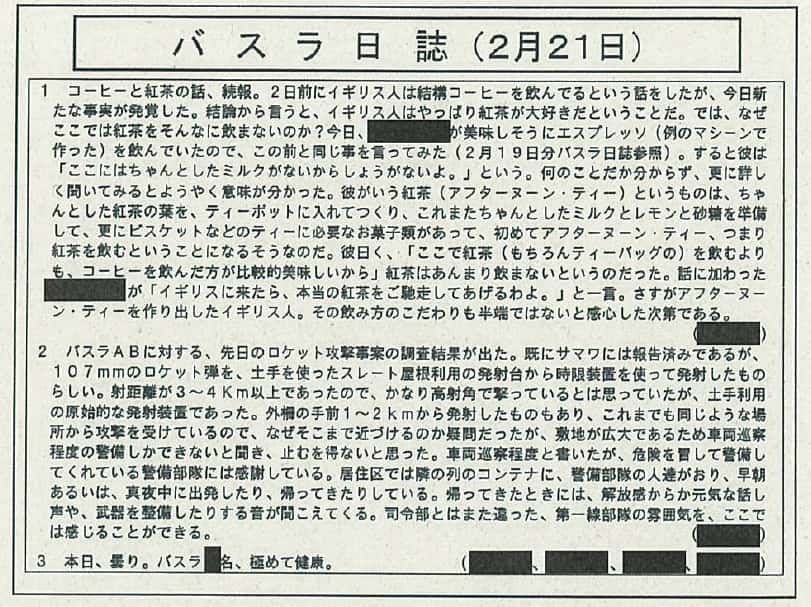 バスラ日誌（2月21日）
1　コーヒーと紅茶の話、続報。2日前にイギリス人は結構コーヒーを飲んでるという話をしたが、今日新
たな事実が発覚した。結論から言うと、イギリス人はやっぱり紅茶が大好きだということだ。では、なぜ
ここでは紅茶をそんなに飲まないのか？今日、が美味しそうにエスプレッソ（例のマシーンで
作った）を飲んでいたので、この前と同じ事を言ってみた（2月19日分バスラ日誌参照）。すると彼は
「ここにはちゃんとしたミルクがないからしょうがないよ。」という。何のことだか分からず、更に詳し
く聞いてみるとようやく意味が分かった。彼がいう紅茶（アフターヌーン・ティー）というものは、ちゃ
んとした紅茶の葉を、ティーポットに入れてつくり、これまたちゃんとしたミルクとレモンと砂糖を準備
して、更にビスケットなどのティーに必要なお菓子類があって、初めてアフターヌーン・ティー、つまり
紅茶を飲むということになるそうなのだ。彼曰く、「ここで紅茶（もちろんティーバッグの）を飲むより
も、コーヒーを飲んだ方が比較的美味しいから」紅茶はあんまり飲まないというのだった。話に加わった
が「イギリスに来たら、本当の紅茶をご馳走してあげるわよ。」と一言。さすがアフターヌー
ン・ティーを作り出したイギリス人。その飲み方のこだわりも半端ではないと感心した次第である。
（　）
2　バスラABに対する、先日のロケット攻撃事案の調査結果が出た。既にサマワには報告済みであるが、
107mmのロケット弾を、土手を使ったスレート屋根利用の発射台から時限装置を使って発射したもの
らしい。射距離が3～4Km以上であったので、かなり高射角で撃っているとは思っていたが、土手利用
の原始的な発射装置であった。外柵の手前1～2kmから発射したものもあり、これまでも同じような場
所から攻撃を受けているので、なぜそこまで近づけるのか疑問だったが、敷地が広大であるため車両巡察
程度の警備しかできないと聞き、止むを得ないと思った。車両巡察程度と書いたが、危険を冒して警備し
てくれている警備部隊には感謝している。居住区では隣の列のコンテナに、警備部隊の人達がおり、早朝
あるいは、真夜中に出発したり、帰ってきたりしている。帰ってきたときには、解放感からか元気な話し
声や、武器を整備したりする音が聞こえてくる。司令部とはまた違った、第一線部隊の雰囲気を、ここで
は感じることができる。
（　）
3　本日、曇り。バスラ名、極めて健康。（　、　、　、　）